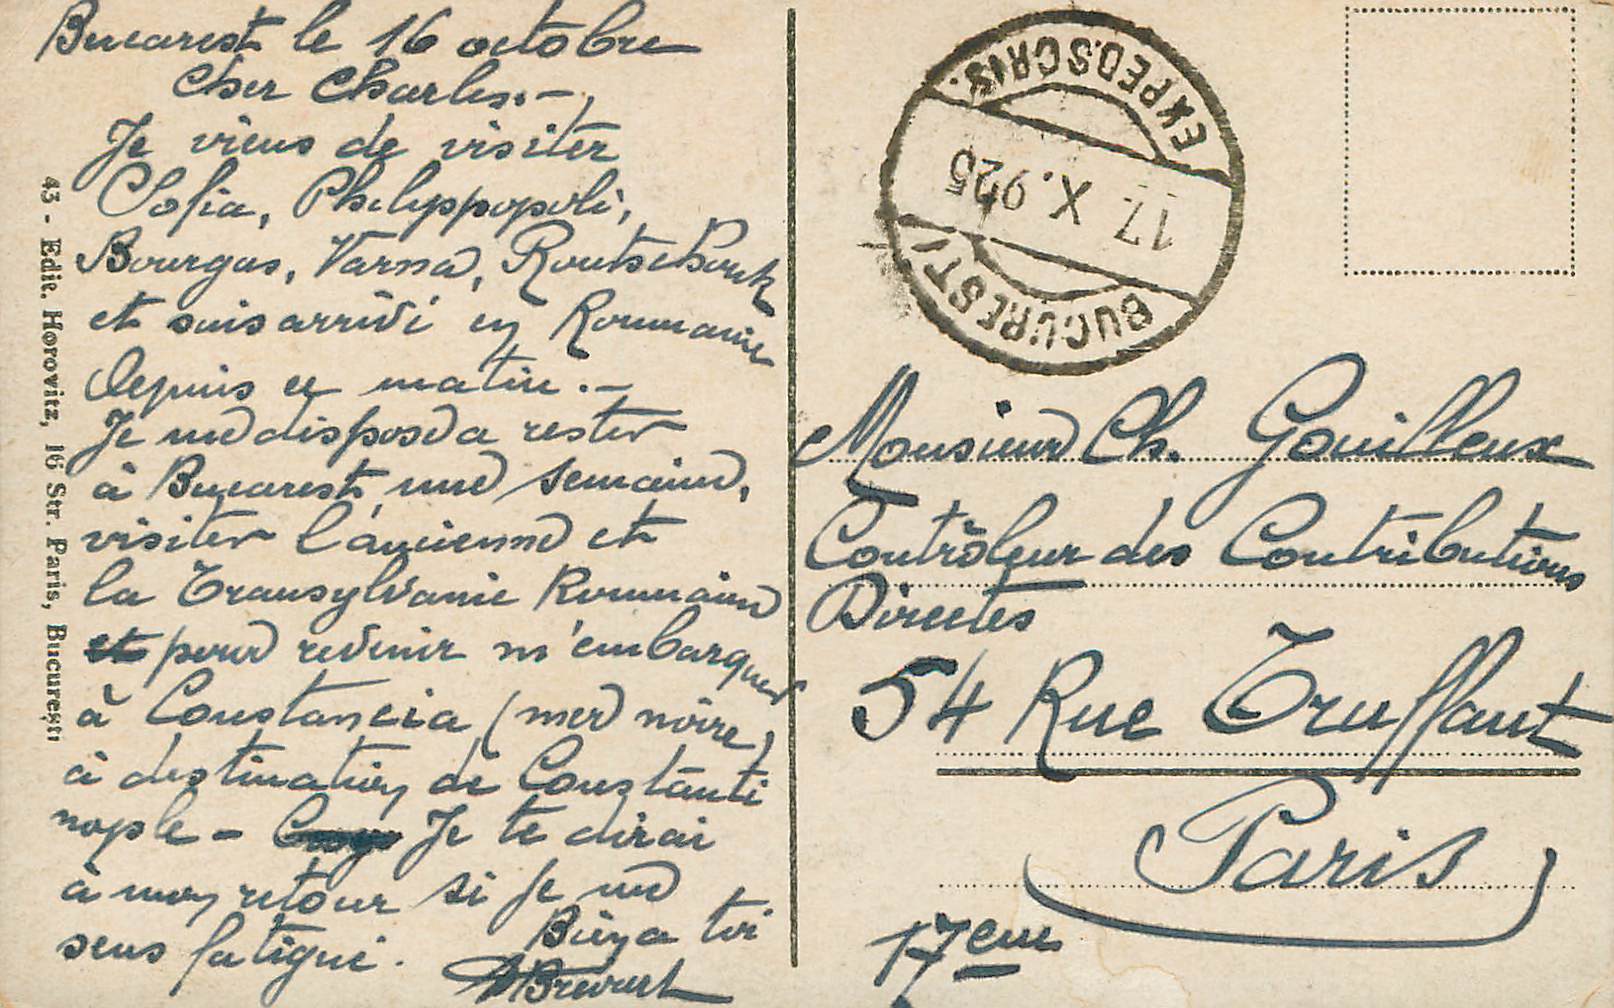 Bucarest le 16 octobre
Cher Charles.-,
Je viens de visiter
Sofia, Philippopoli,
Bourgas, Varna, Routschouk
et suis arrivé en Roumanie
depuis ce matin.-
Je me dispose a rester
à Bucarest, une semaine,
visiter l'ancienne et
la Transylvanie Roumaine
et pour revenir m'embarquer
à Constancia (mer noire)
à destination de Constanti
nople - Je te dirai
à mon retour si je me
sens fatigué.
Bien a toi
43 - Edit. Horovitz, 16 Str. Paris, București
EXPED.SCRIS.
17. X. 925
BUCUREȘTI
Monsieur Ch. Gouilleux
Contrôleur des Contributions
Directes
54 Rue Truffaut
Paris
17eme